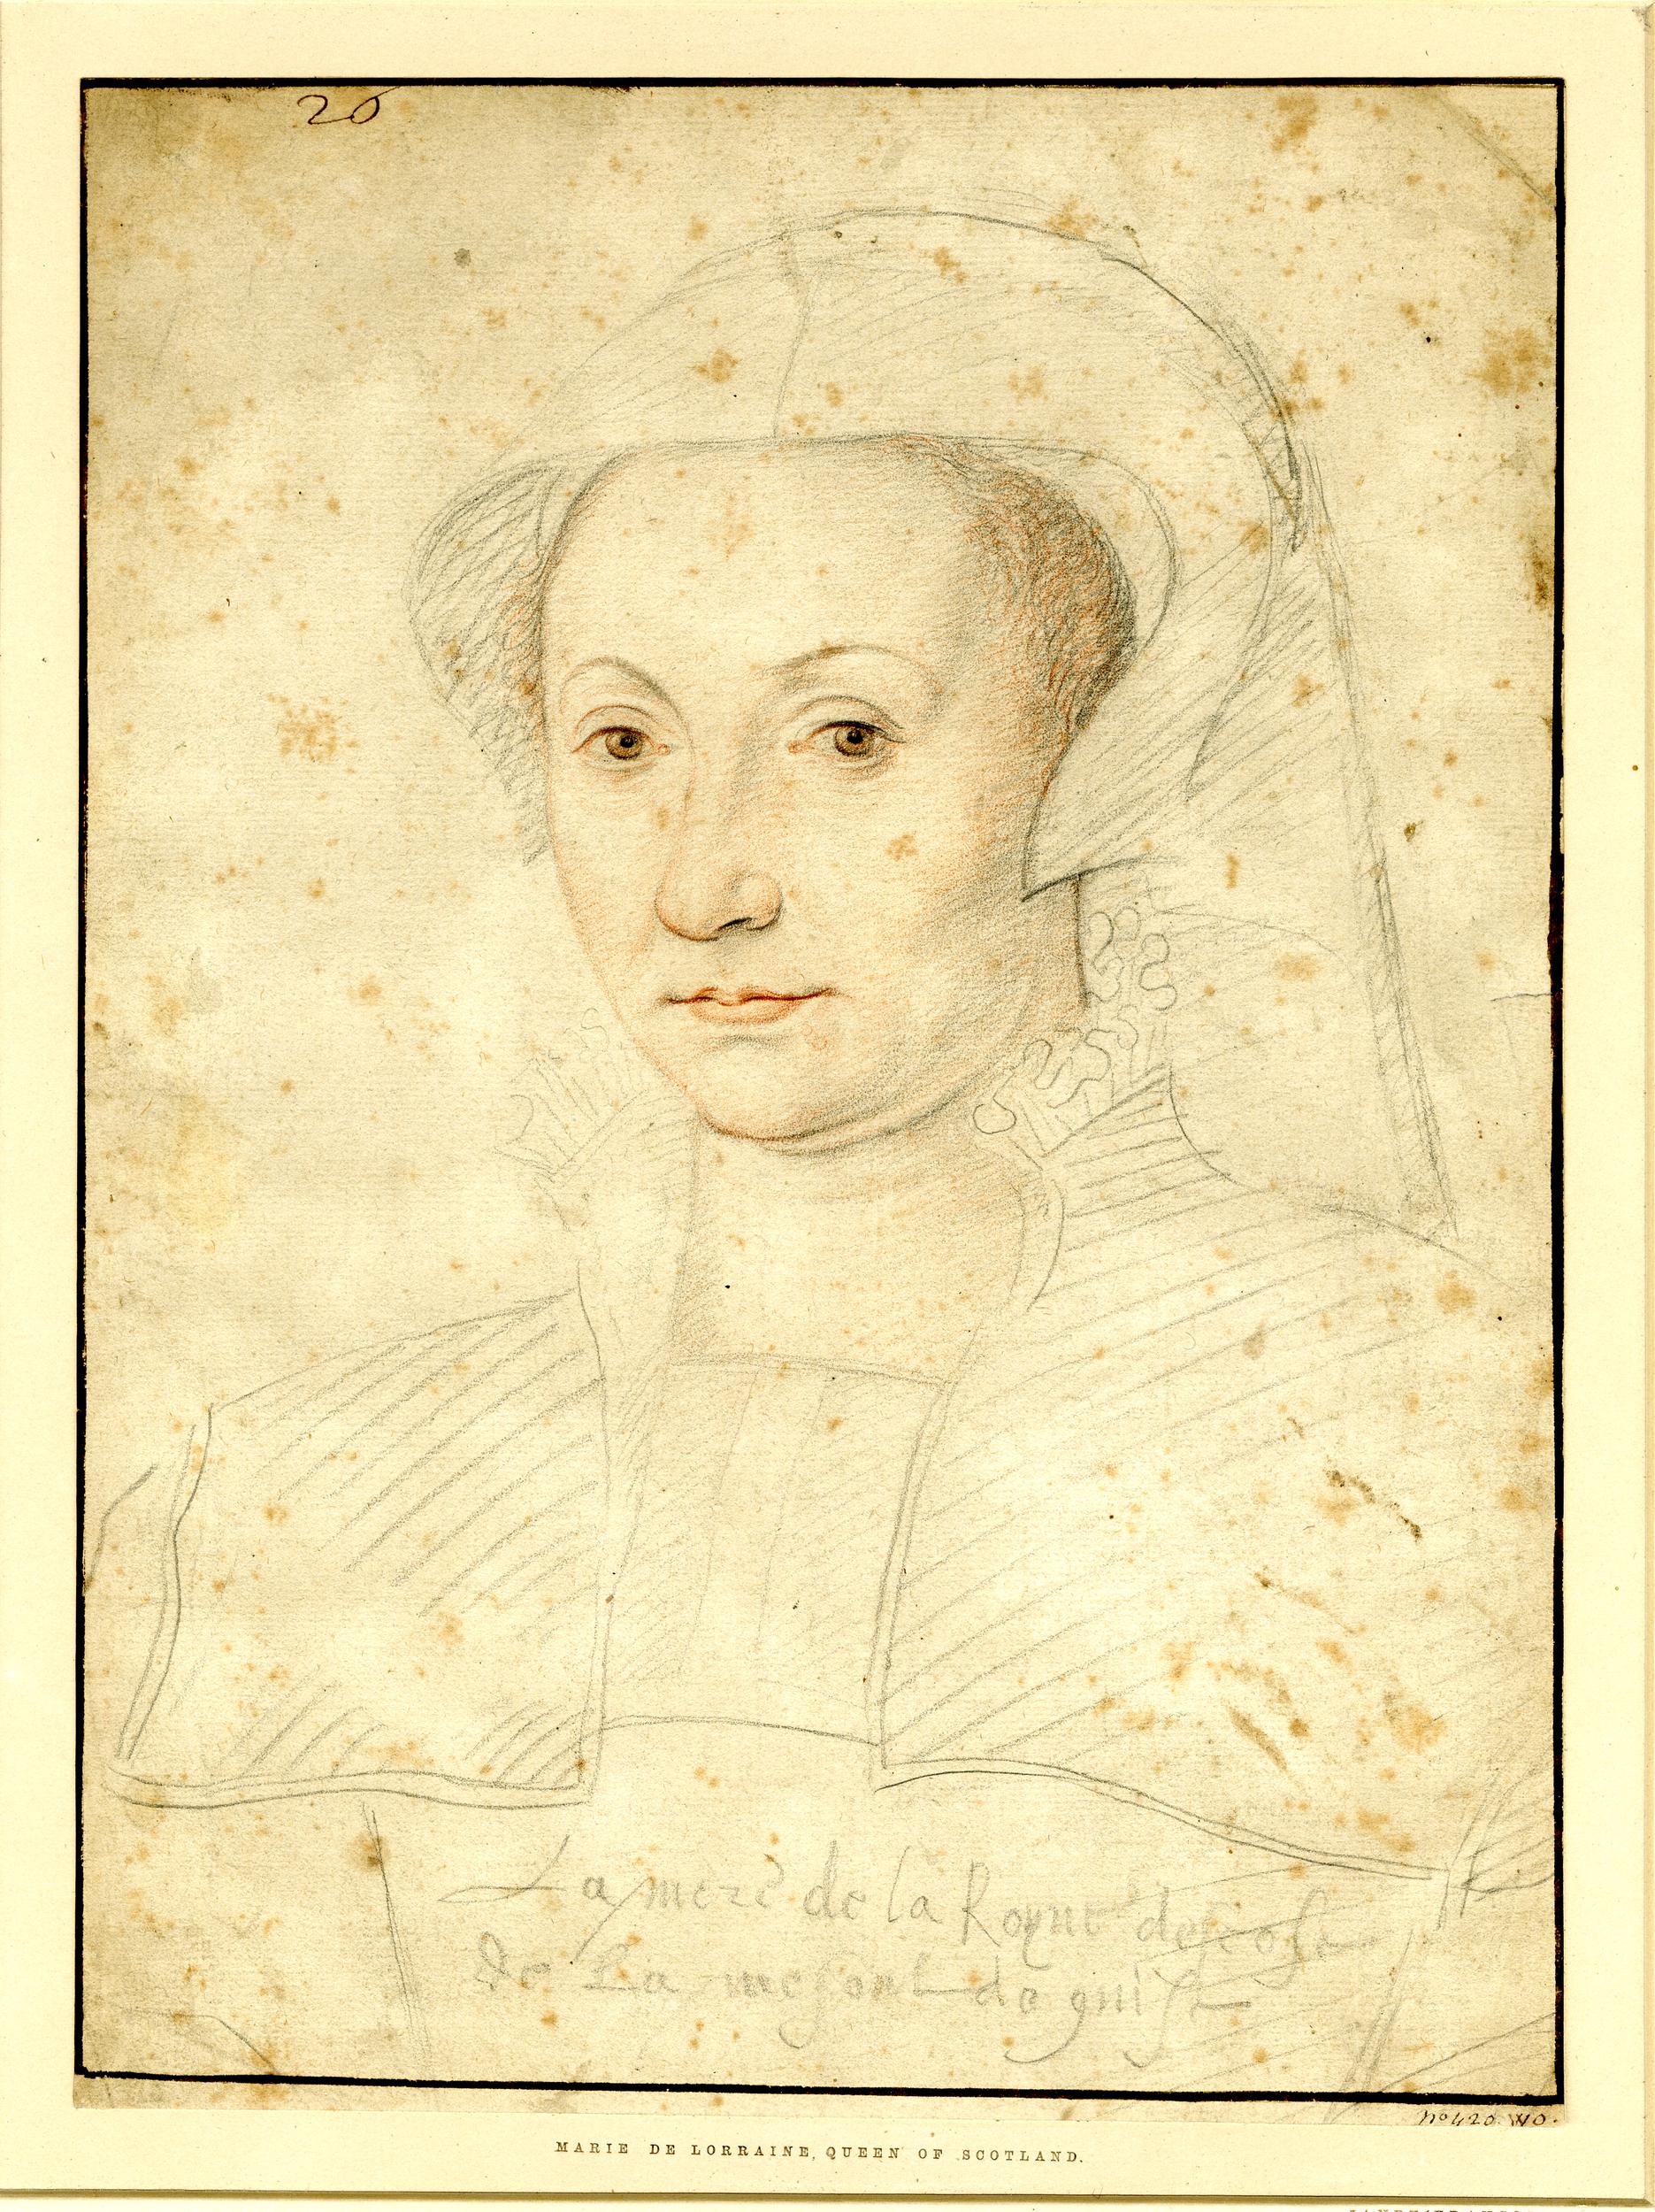 26
La mere de la Royne descosse
de La meson de guise
no 420. WO.
MARIE DE LORRAINE, QUEEN OF SCOTLAND.